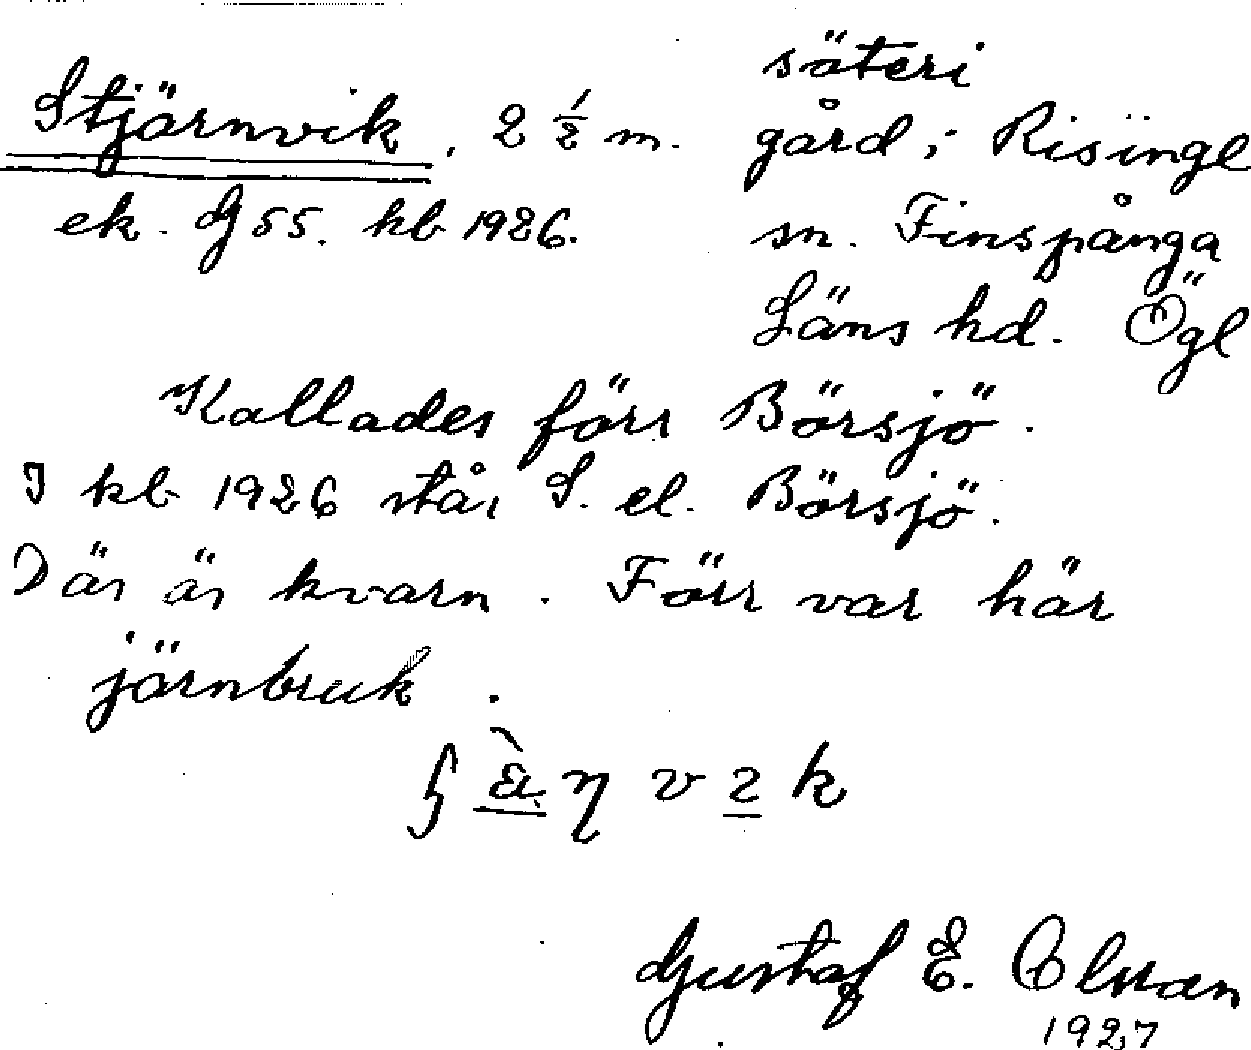 säteri
Stjärnvik, 2 1/2 m. gård, i Risinge
ek. Gj 55. kb 1926. sn. Finspånga
Läns hd. Ögl
Kallades förr Börsjö.
I kb 1926 står S. el. Börsjö.
Där är kvarn. Förr var här
järnbruk.
v k
Gustaf E.
1927